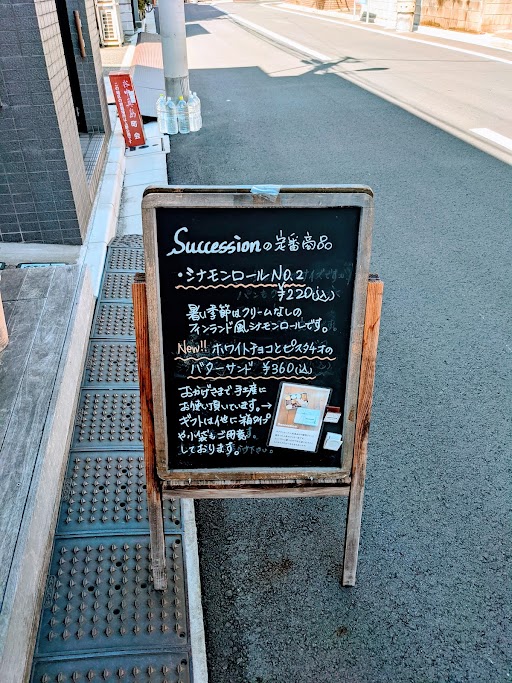 Successionの定番商品
・シナモンロールNO.2
¥220(込)
暑い季節はクリームなしの
フィンランド風シナモンロールです。
New!! ホワイトチョコとピスタチオの
バターサンド ¥360(込)
おかげさまで手土産に
お使い頂いています。→
ギフトは他に箱タイプ
や小袋もご用意
しております。